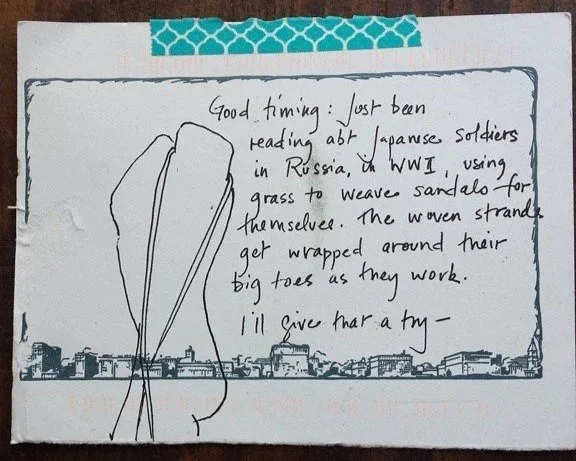 Good timing: Just been
reading abt Japanese soldiers
in Russia, in WWI, using
grass to weave sandals for
themselves. The woven strands
get wrapped around their
big toes as they work.
I'll give that a try—